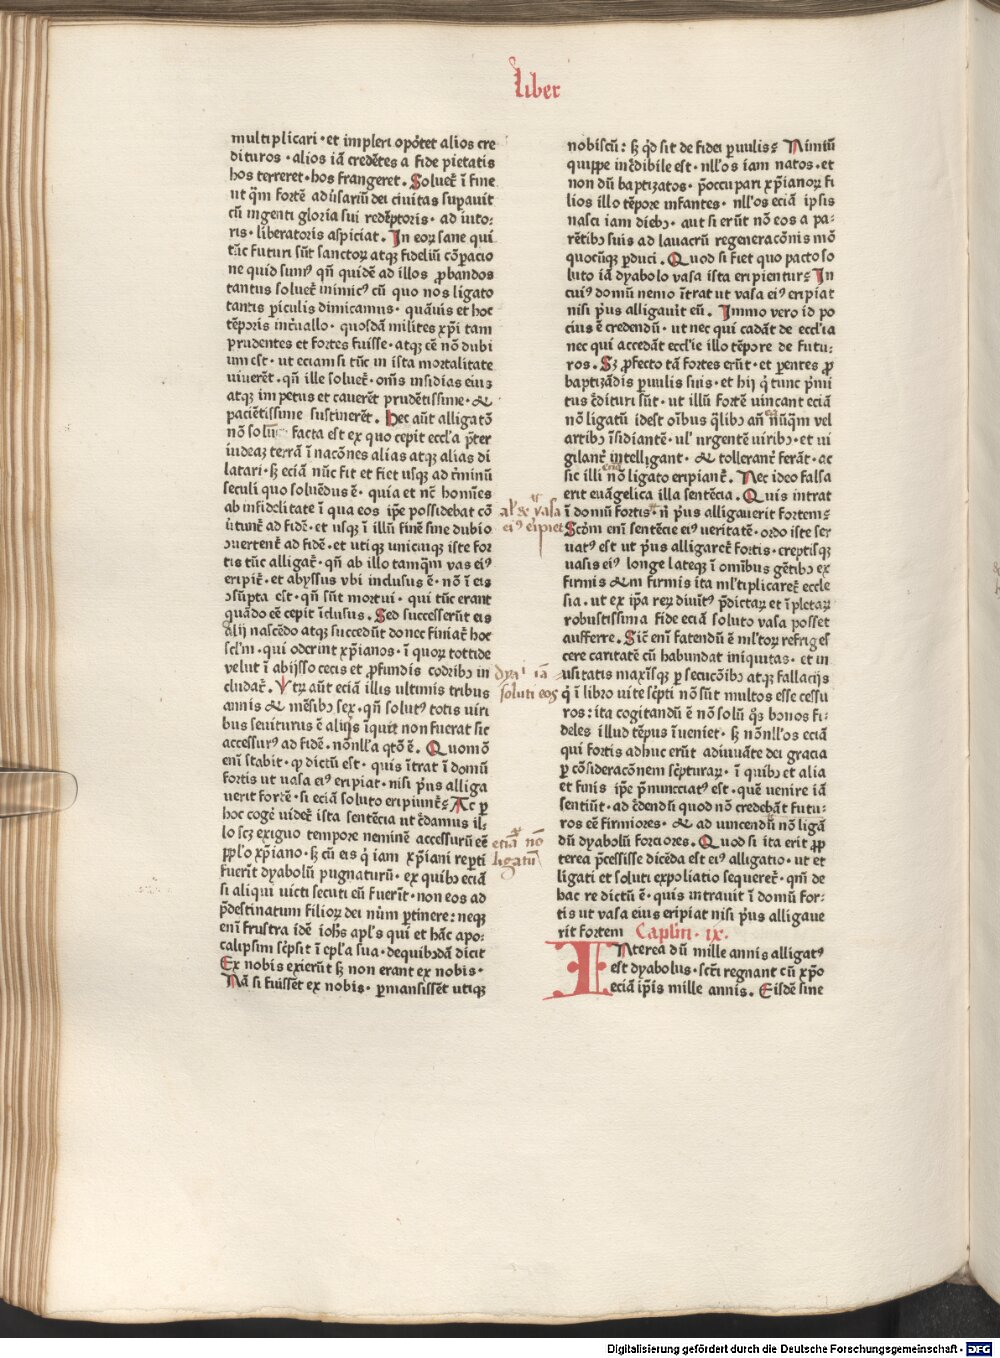 liber
multiplicari · et impleri opōtet alios cre
dituros · alios iā credētes a fide pietatis
hos terreret · hos frangeret . Soluet᷑ ī fine
ut q̄m fortē adūsariū dei ciuitas suꝑauit
cū ingenti gloria sui redēptoris · adiuto:
ris · liberatoris aspiciat . In eoꝝ sane qui
tūc futuri sūt sanctoꝝ atqꝫ fideliū cōꝑacio
ne quid sumꝰ qn̄ quidē ad illos ꝓbandos
tantus soluet᷑ inimicꝰ cū quo nos ligato
tantis ꝑiculis dimicamus · quāuis et hoc
tēporis int̄uallo · quosdā milites xp̄i tam
prudentes et fortes fuisse · atqꝫ eē nō dubi
um est · ut eciam si tūc in ista mortalitate
uiuerēt · qn̄ ille soluet᷑ · om̄s insidias eius
atqꝫ impetus et cauerēt prudētissime · &
paciētissime sustinerēt . Hec aūt alligatō
nō solū facta est ex quo cepit eccl'a p̄ter
iudeaꝫ terrā ī nacōnes alias atqꝫ alias di
latari · sꝫ eciā nūc fit et fiet usqꝫ ad t̄minū
seculi quo soluēdus ē · quia et nc̄ homīes
ab infidelitate ī qua eos ip̄e possidebat cō
ūtunt᷑ ad fidē · et usqꝫ ī illū finē sine dubio
ↄuertent᷑ ad fidē · et utiqꝫ unicuiqꝫ iste for
tis tūc alligat᷑ · qn̄ ab illo tamq̄m vas eiꝰ
eripit᷑ · et abyssus vbi inclusus ē · nō ī eis
ↄsūpta est · qn̄ sūt mortui · qui tūc erant
quādo eē cepit īclusus . Sed successerūt eis
alij nascēdo atqꝫ succedūt donec finiat᷑ hoc
scl'm · qui oderint xp̄ianos · ī quoꝝ tottide
velut ī abijsso cecis et ꝓfundis cordibꝫ in
cludat᷑ . Vtꝝ aūt eciā illis ultimis tribus
annis & mēsibꝫ sex · qn̄ solutꝰ totis uiri
bus seuiturus ē aliq̄s ī quit non fuerat sic
accessurꝰ ad fidē · nōnll'a q̄tō ē . Quomō
enī stabit · ꝙ dictū est · quis īt̄rat ī domū
fortis ut uasa eiꝰ eripiat · nisi p̄us alliga
uerit fortē · si eciā soluto eripiunt᷑: Ac ꝑ
hoc cogē uidet᷑ ista sentēcia ut c̄damus il:
lo scꝫ exiguo tempore neminē accessurū eē
pp̄l'o xp̄iano · sꝫ cū eis q̄ iam xp̄iani reꝑti
fuerīt dyabolū pugnaturū · ex quibꝫ eciā
si aliqui uicti secuti eū fuerīt · non eos ad
p̄destinatum filioꝝ dei nūm ꝑtinere: neqꝫ
enī frustra idē ioh̄s apl's qui et hāc apo:
calipsim sc̄psit ī ep̄l'a sua · de quibꝫdā dicit
Ex nobis exierūt sꝫ non erant ex nobis ·
Nā si fuissēt ex nobis · ꝑmansissēt utiqꝫ
al' & vasa
eiꝰ eripiet
dya' iā
soluti eos
etiā nō
ligatū
nobiscū: sꝫ q̄d sit de fidei ꝑuulis: Nimiū
quippe inc̄dibile est · nll'os iam natos · et
non dū baptizatos · p̄occupari xp̄ianoꝝ fi
lios illo tēpore infantes · nll'os eciā ipsis
nasci iam diebꝫ · aut si erūt nō eos a pa:
rētibꝫ suis ad lauacrū regeneracōnis mō
quocūqꝫ ꝑduci . Quod si fiet quo pacto so
luto iā dyabolo vasa ista eripientur: In
cuiꝰ domū nemo īt̄rat ut vasa eiꝰ eripiat
nisi p̄us alligauīt eū . Immo vero id po
cius ē credendū · ut nec qui cadāt de eccl'ia
nec qui accedāt eccl'ie illo tēpore de futu:
ros . Sꝫ ꝓfecto tā fortes erūt · et ꝑentes ꝓ
baptizādis ꝑuulis suis · et hij q̄ tunc p̄mi
tus c̄dituri sūt · ut illū fortē uincant eciā
nō ligatū idest oībus q̄libꝫ an̄ nūq̄m vel
artibꝫ īsidiantē · ul' urgentē uiribꝫ · et ui
gilant᷑ intelligant · & tollerant᷑ ferāt · ac
sic illi nō ligato eripiant᷑ . Nec ideo falsa
erit euāgelica illa sentēcia . Quis intrat
ī domū fortis · n̄ p̄us alligauerit fortem:
Scdm enī sentēcie eiꝰ ueritatē · ordo iste ser
uatꝰ est ut p̄us alligaret᷑ fortis · ereptisqꝫ
uasis eiꝰ longe lateqꝫ ī omībus gētibꝫ ex
firmis & īn firmis ita ml'tiplicaret᷑ eccle
sia · ut ex ip̄a reꝝ diuītꝰ p̄dictaꝝ et īpletaꝝ
robustissima fide eciā soluto vasa posset
aufferre . Sic̄ enī fatendū ē ml'toꝝ refriges
cere caritatē cū habundat iniquitas · et in
usitatis maxīsqꝫ ꝑsecucōibꝫ atqꝫ fallacijs
q̄ ī libro uite sc̄pti nō sūt multos esse cessu
ros: ita cogitandū ē nō solū q̄s bonos fi:
deles illud tēpus īueniet · sꝫ nōnll'os eciā
qui fortis adhuc erūt adiuuāte dei gracia
ꝑ cōsideracōnem sc̄pturaꝝ · ī quibꝫ et alia
et finis ip̄e p̄nuncciatꝰ est · quē uenire iā
sentiūt · ad c̄dendū quod nō credebāt futu:
ros eē firmiores · & ad uincendū nō ligā
dū dyabolū forciores . Quod si ita erit ꝓp
terea p̄cessisse dicēda est eiꝰ alligatio · ut et
ligati et soluti expoliatio sequeret᷑ · qm̄ de
hac re dictū ē · quis intrauit ī domū for:
tis ut vasa eius eripiat nisi p̄us alligaue
rit fortem Capl'm · ix ·
INterea dū mille annis alligatꝰ
est dyabolus · sc̄ti regnant cū xp̄o
eciā ip̄is mille annis . Eisdē sine
Digitalisierung gefördert durch die Deutsche Forschungsgemeinschaft - DFG